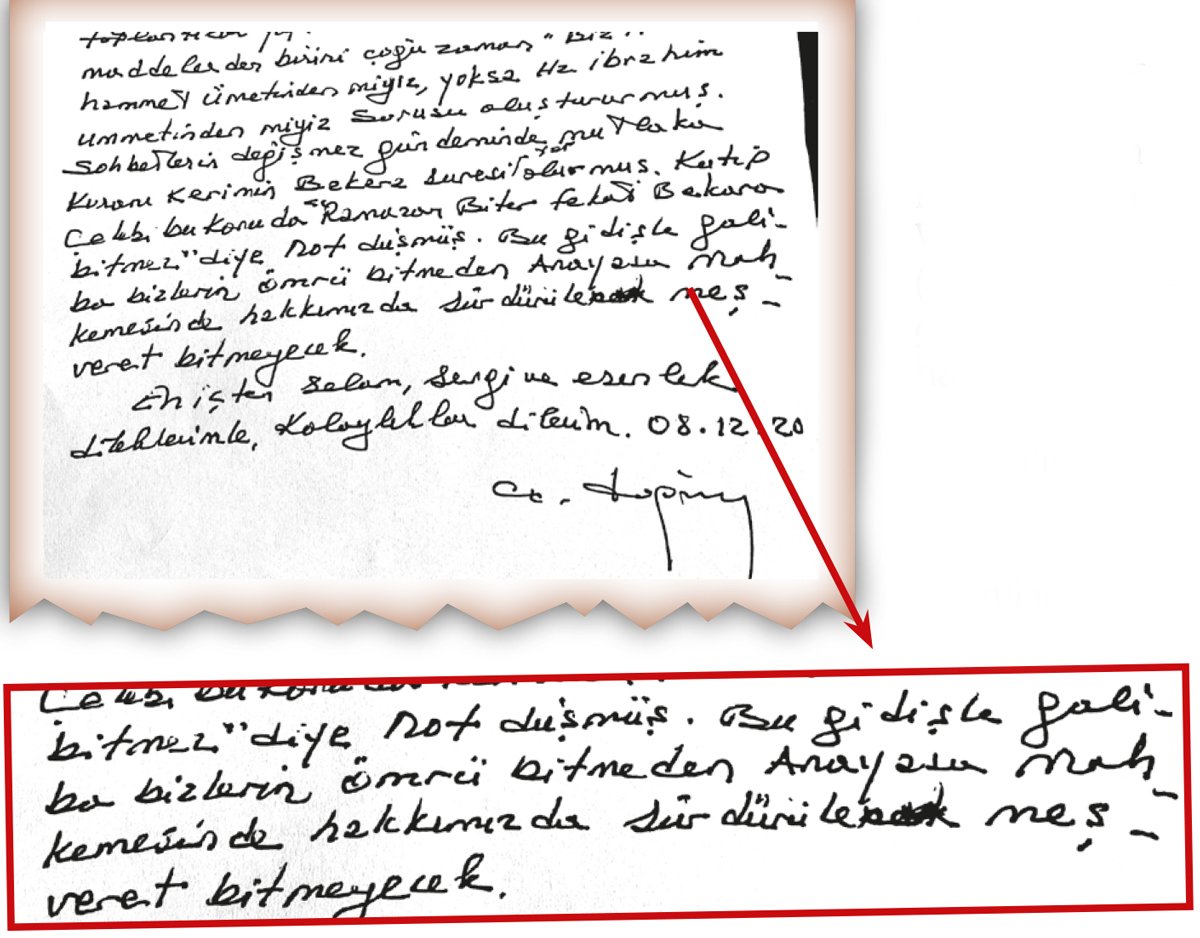 maddelerden birini çoğu zaman "Biz
hammed Ümetinden miyiz, yoksa Hz ibrahim
ummetinden miyiz sorusu oluştururmuş.
Sohbetlerin değişmez gündeminde mutlaka
Kuranı Kerimin Bekara suresi olurmuş. Katip
Çelebi bu konuda "Ramazan Biter fakat Bakara
bitmez" diye not düşmüş. Bu gidişle gali-
ba bizlerin ömrü bitmeden Anayasa Mah-
kemesinde hakkımızda sürdürülecek meş-
veret bitmeyecek.
selam, sevgi ve esenlek
dileklerimle, Kolaylıklar dilerim. 08.12.20
bitmez" diye not düşmüş. Bu gidişle gali-
ba bizlerin ömrü bitmeden Anayasa Mah-
kemesinde hakkımızda sürdürülecek meş-
veret bitmeyecek.